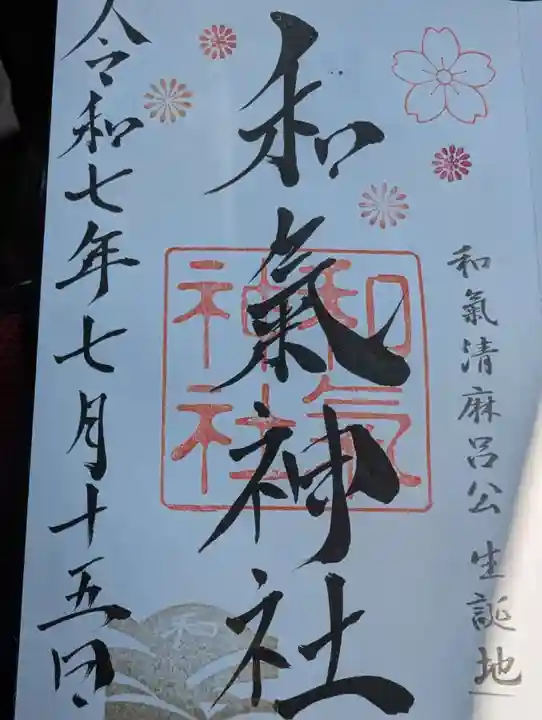 和氣清麻呂公 生誕地
和氣神社
和氣神社
令和七年七月十五日
和